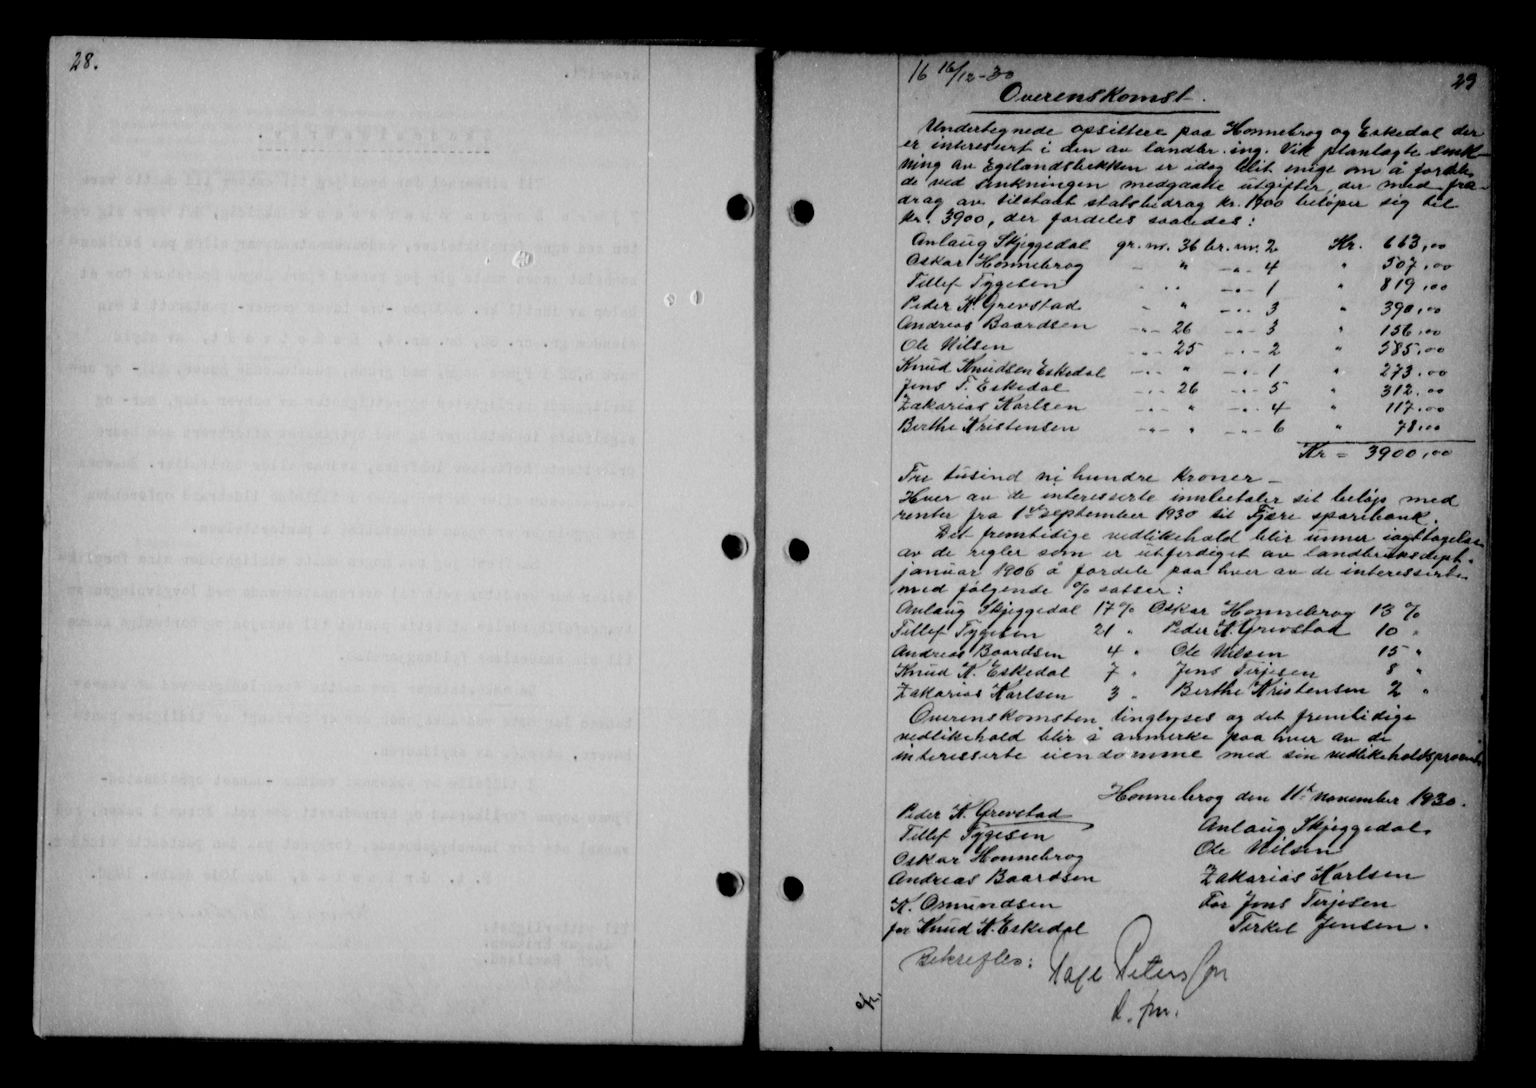 28.
16 16/12-30
29
Overenskomst.
Undertegnede opsittere paa Honnebrog og Eskedal der
er interesert i den av landbr. ing. Vik planlagte senk-
ning av Egelandsbekken er idag blit enige om å forde-
de ved senkningen medgaatte utgifter, der med fra-
drag av tilstaat statsbidrag kr. 1900 beløper sig til
kr. 3900, der fordeles saaledes:
Anlaug Skjeggedal gr. nr. 36 br. nr. 2 Kr. 663,00
Oskar Honnebrog - " -"- 4 " 507,00
Tellef Tygesen - " -"- 1 " 819,00
Peder K. Grevstad - " -"- 3 " 390,00
Andreas Baardsen -"- 26 -"- 3 " 156,00
Ole Nilsen -"- 25 -"- 2 " 585,00
Knud Knudsen Eskedal -"- " -"- 1 " 273,00
Jens T. Eskedal -"- 26 -"- 5 " 312,00
Zakarias Karlsen -"- " -"- 4 " 117,00
Berthe Kristensen -"- " -"- 6 " 78,00
Kr = 3900,00
Tre tusind ni hundre kroner -
Hver av de interesserte innbetaler sit beløp med
renter fra 1ste september 1930 til Fjære sparebank.
Det fremtidige vedlikehold blir unner iagttagelse
av de regler som er utferdiget av landbruksdept.
januar 1906 å fordele paa hver av de interesserte
med følgende % satser:
Anlaug Skjeggedal 17 % Oskar Honnebrog 13 %
Tellef Tygesen 21 " Peder K. Grevstad 10 "
Andreas Baardsen 4 " Ole Nilsen 15 "
Knud K. Eskedal 7 " Jens Terjesen 8 "
Zakarias Karlsen 3 " Berthe Kristensen 2 "
Overenskomsten tinglyses og det fremtidige
vedlikehold blir å anmerke paa hver av de
interesserte eiendomme med sin vedlikeholdsprocent.
Honnebrog den 11te november 1930.
Peder K. Grevstad
Anlaug Skjeggedal.
Tellef Tygesen
Ole Nilsen
Oskar Honnebrog
Zakarias Karlsen
Andreas Baardsen
For Jens Terjesen
K. Osmundsen
Terkel Jensen.
for Knud K. Eskedal
Bekreftes: